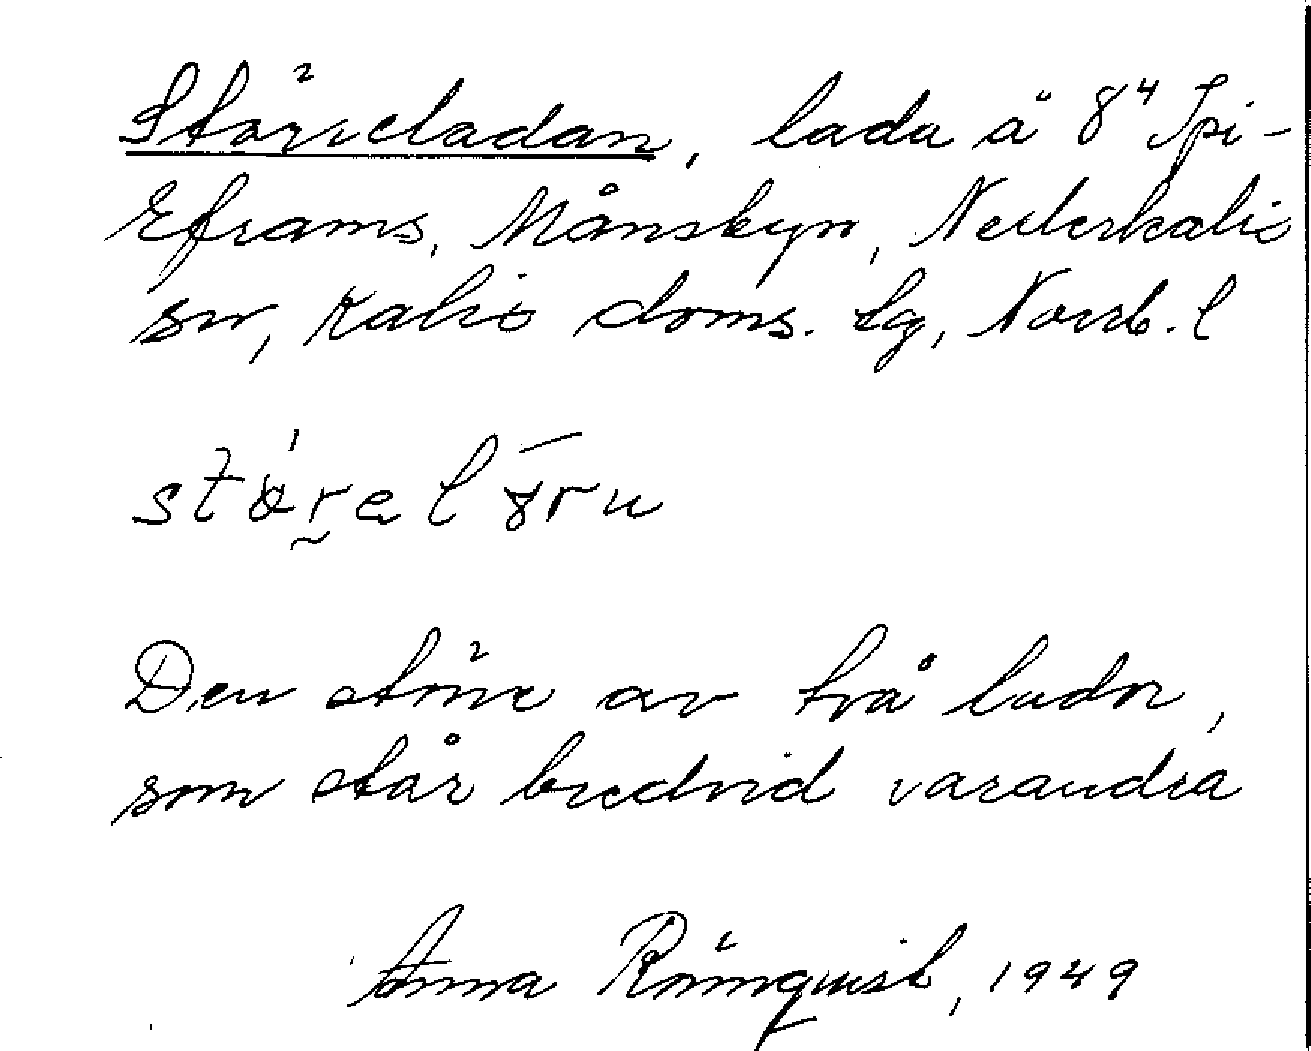 Störreladan, lada å 8⁴ Spi-
Eframs, Månsbyn, Nederkalix
sn, Kalix doms. tg, Norrb. l
Den större av två lador,
som står bredvid varandra
Anna Rönnquist, 1949